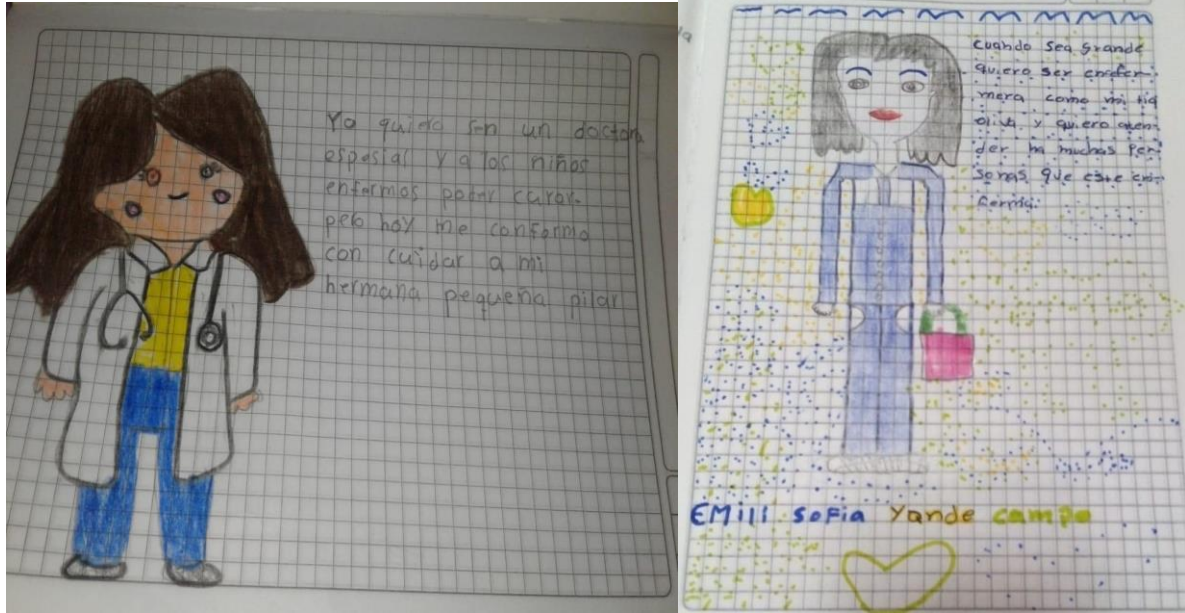 Yo quiero ser un doctora
espesial y a los niños
enfermos poder curar.
pelo hoy me conformo
con cuidar a mi
hermana pequeña pilar
cuando sea grande
quiero ser enfer-
mera como mi tia
oliva y quiero aten-
der ha muchas Per-
sonas que este en-
ferma.
EMill SoFia Yande campo